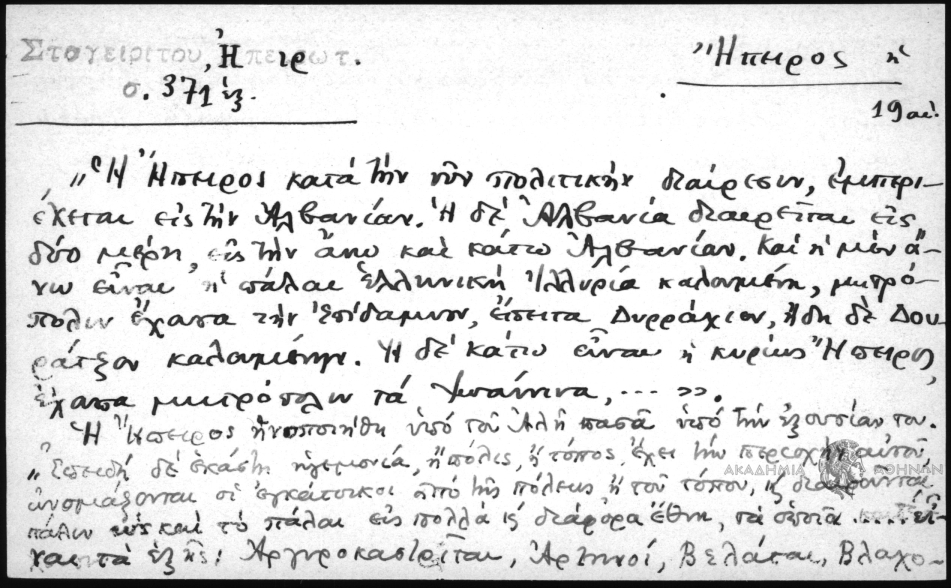 Σταγειρίτου, Ἠπειρωτ.
σ. 371 ἑξ.
Ἤπειρος ἡ
19 αἰ.
"Ἡ Ἤπειρος κατὰ τὴν νῦν πολιτικὴν διαίρεσιν, ἐμπερι-
έχεται εἰς τὴν Ἀλβανίαν. Ἡ δὲ Ἀλβανία διαιρεῖται εἰς
δύο μέρη, εἰς τὴν ἄνω καὶ κάτω Ἀλβανίαν. Καὶ ἡ μὲν ἄ-
νω εἶναι ἡ πάλαι Ἑλληνικὴ Ἰλλυρία καλουμένη, μητρό-
πολιν ἔχουσα τὴν Ἐπίδαμνον, ἔπειτα Δυρράχιον, ἤδη δὲ Δου
ράτζον καλουμένην. Ἡ δὲ κάτω εἶναι ἡ κυρίως Ἤπειρος,
ἔχουσα μητρόπολιν τὰ Ἰωάννινα, ... ».
Ἡ Ἤπειρος ἡνοποιήθη ὑπὸ τοῦ Ἀλῆ πασᾶ ὑπὸ τὴν ἐξουσίαν του.
"Ἐπειδὴ δὲ ἑκάστη ἡγεμονία, ἢ πόλις, ἢ τόπος, ἔχει τὴν περιοχὴν αὐτοῦ,
ὀνομάζονται οἱ ἐγκάτοικοι ἀπὸ τῆς πόλεως ἢ τοῦ τόπου, κ' διαιροῦνται
πάλιν ὡς καὶ τὸ πάλαι εἰς πολλὰ κ' διάφορα ἔθνη, τὰ ὁποῖα .... εἶ-
ναι τὰ ἑξῆς: Ἀργυροκαστρῖται, Ἀρτηνοί, Βελάται, Βλαχο-
ΑΚΑΔΗΜΙΑ ΑΘΗΝΩΝ